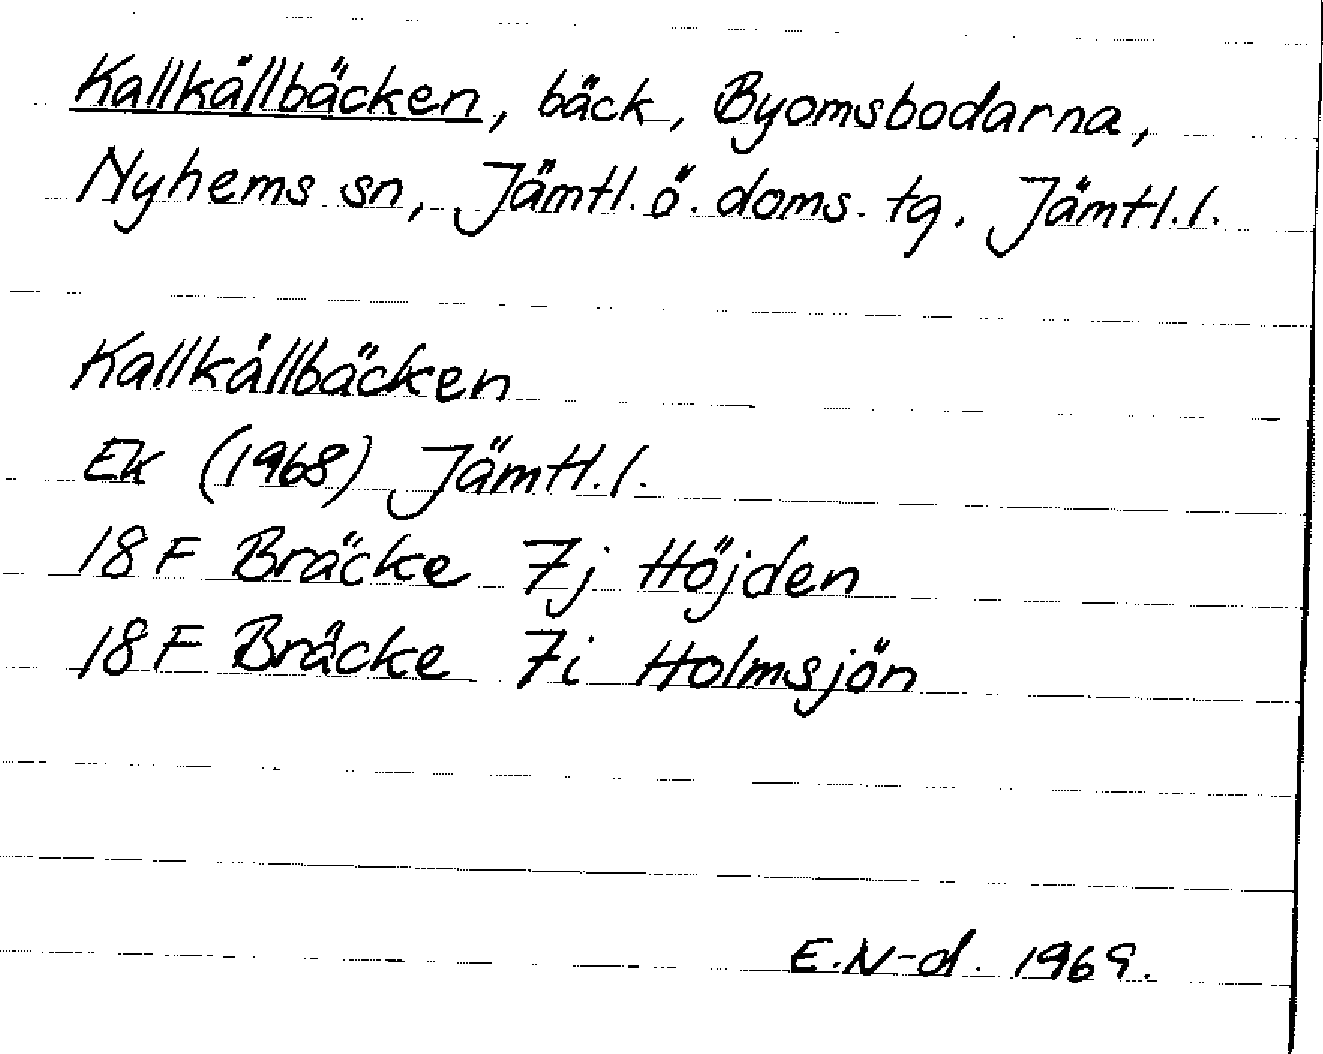 Kallkällbäcken, bäck, Byomsbodarna,
Nyhems sn, Jämtl. ö. doms. tg. Jämtl. l.
Kallkällbäcken
Ek (1968) Jämtl. l.
18 F Bräcke 7j Höjden
18 F Bräcke 7i Holmsjön
E.N-d. 1969.